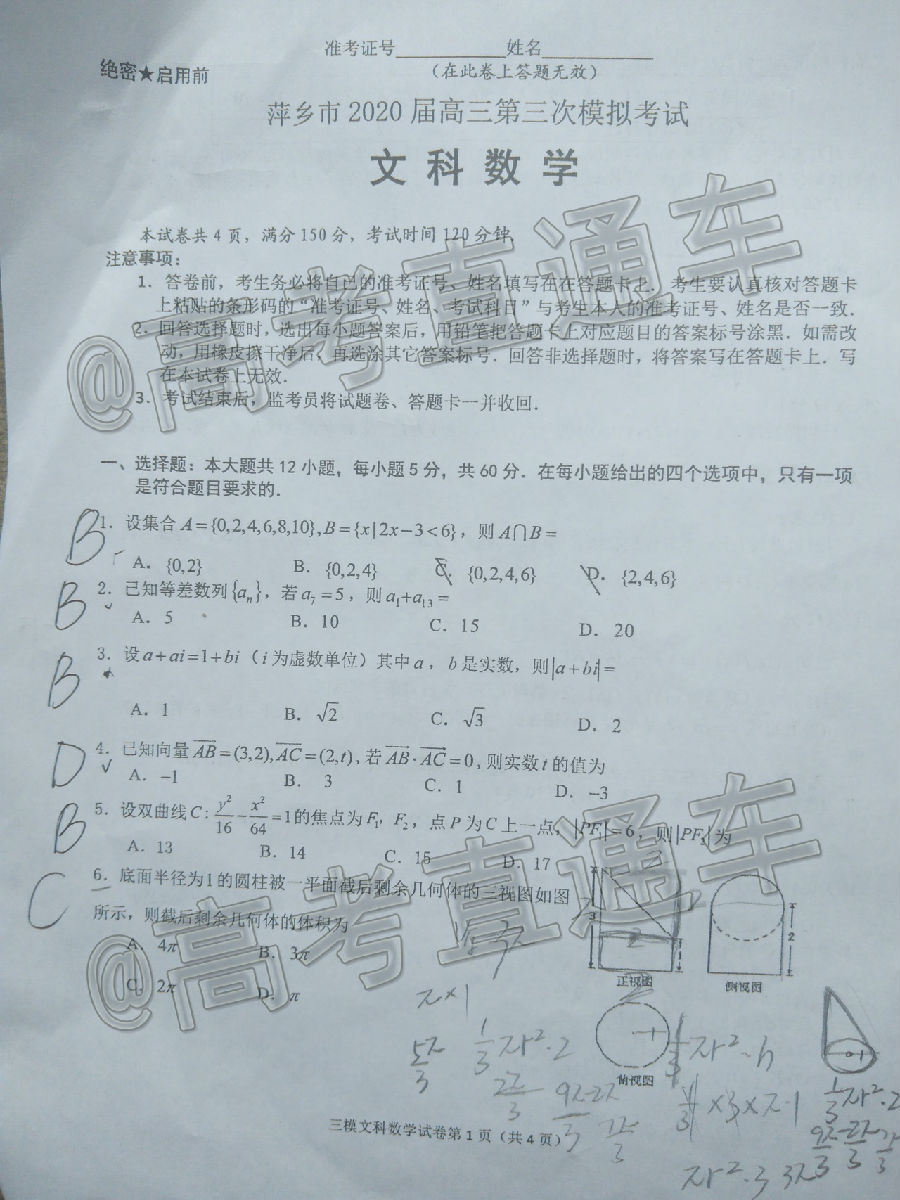 准考证号 姓名
绝密★启用前
（在此卷上答题无效）
萍乡市 2020 届高三第三次模拟考试
文科数学
本试卷共 4 页，满分 150 分，考试时间 120 分钟.
注意事项：
1．答卷前，考生务必将自己的准考证号、姓名填写在在答题卡上．考生要认真核对答题卡
上粘贴的条形码的“准考证号、姓名、考试科目”与考生本人的准考证号、姓名是否一致.
2．回答选择题时，选出每小题答案后，用铅笔把答题卡上对应题目的答案标号涂黑．如需改
动，用橡皮擦干净后，再选涂其它答案标号．回答非选择题时，将答案写在答题卡上．写
在本试卷上无效.
3．考试结束后，监考员将试题卷、答题卡一并收回.
一、选择题：本大题共 12 小题，每小题 5 分，共 60 分．在每小题给出的四个选项中，只有一项
是符合题目要求的.
B 1．设集合 A={0,2,4,6,8,10}, B={x|2x-3<6}，则 A∩B=
A．{0,2} B．{0,2,4} C．{0,2,4,6} D．{2,4,6}
B 2．已知等差数列{aₙ}，若 a₇=5，则 a₁+a₁₃=
A．5 B．10 C．15 D．20
B 3．设 a+ai=1+bi（i 为虚数单位）其中 a，b 是实数，则|a+bi|=
A．1 B．√2 C．√3 D．2
D 4．已知向量 AB=(3,2), AC=(2,t), 若 AB·AC=0, 则实数 t 的值为
A．-1 B．3 C．1 D．-3
B 5．设双曲线 C: y²/16 - x²/64 =1 的焦点为 F₁，F₂，点 P 为 C 上一点，|PF₁|=6，则|PF₂|为
A．13 B．14 C．15 D．17
C 6．底面半径为1的圆柱被一平面截后剩余几何体的三视图如图
所示，则截后剩余几何体的体积为
A．4π B．3π
C．2π D．π
3 1 2
正视图 侧视图
俯视图
π×1
5π/3 1/3 πr²·2
2π/3 9π-2π/3 7π/3
πr²·h
×3×π·1
1/3 πr²·2
9π-2π/3 7π/3
πr²·3 3π
三模文科数学试卷第 1 页（共 4 页）
@高考直通车
@高考直通车